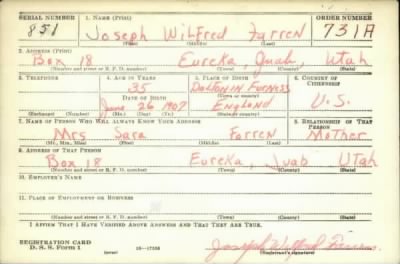 SERIAL NUMBER 1. NAME (Print) ORDER NUMBER
851 Joseph Wilfred Farren 731A
(First) (Middle) (Last)
2. ADDRESS (Print)
Box 18 Eureka, Juab, Utah
(Number and street or R. F. D. number) (Town) (County) (State)
3. TELEPHONE 4. AGE IN YEARS 5. PLACE OF BIRTH 6. COUNTRY OF CITIZENSHIP
35 Dalton in Furness
DATE OF BIRTH (Town or county)
June 26 1907 England U.S.
(Exchange) (Number) (Mo.) (Day) (Yr.) (State or country)
7. NAME OF PERSON WHO WILL ALWAYS KNOW YOUR ADDRESS 8. RELATIONSHIP OF THAT PERSON
Mrs Sara Farren Mother
(Mr., Mrs., Miss) (First) (Middle) (Last)
9. ADDRESS OF THAT PERSON
Box 18 Eureka, Juab Utah
(Number and street or R. F. D. number) (Town) (County) (State)
10. EMPLOYER'S NAME
11. PLACE OF EMPLOYMENT OR BUSINESS
(Number and street or R. F. D. number) (Town) (County) (State)
I AFFIRM THAT I HAVE VERIFIED ABOVE ANSWERS AND THAT THEY ARE TRUE.
REGISTRATION CARD
D. S. S. Form 1 (over) 16-17105 Joseph Wilfred Farren
(Registrant's signature)